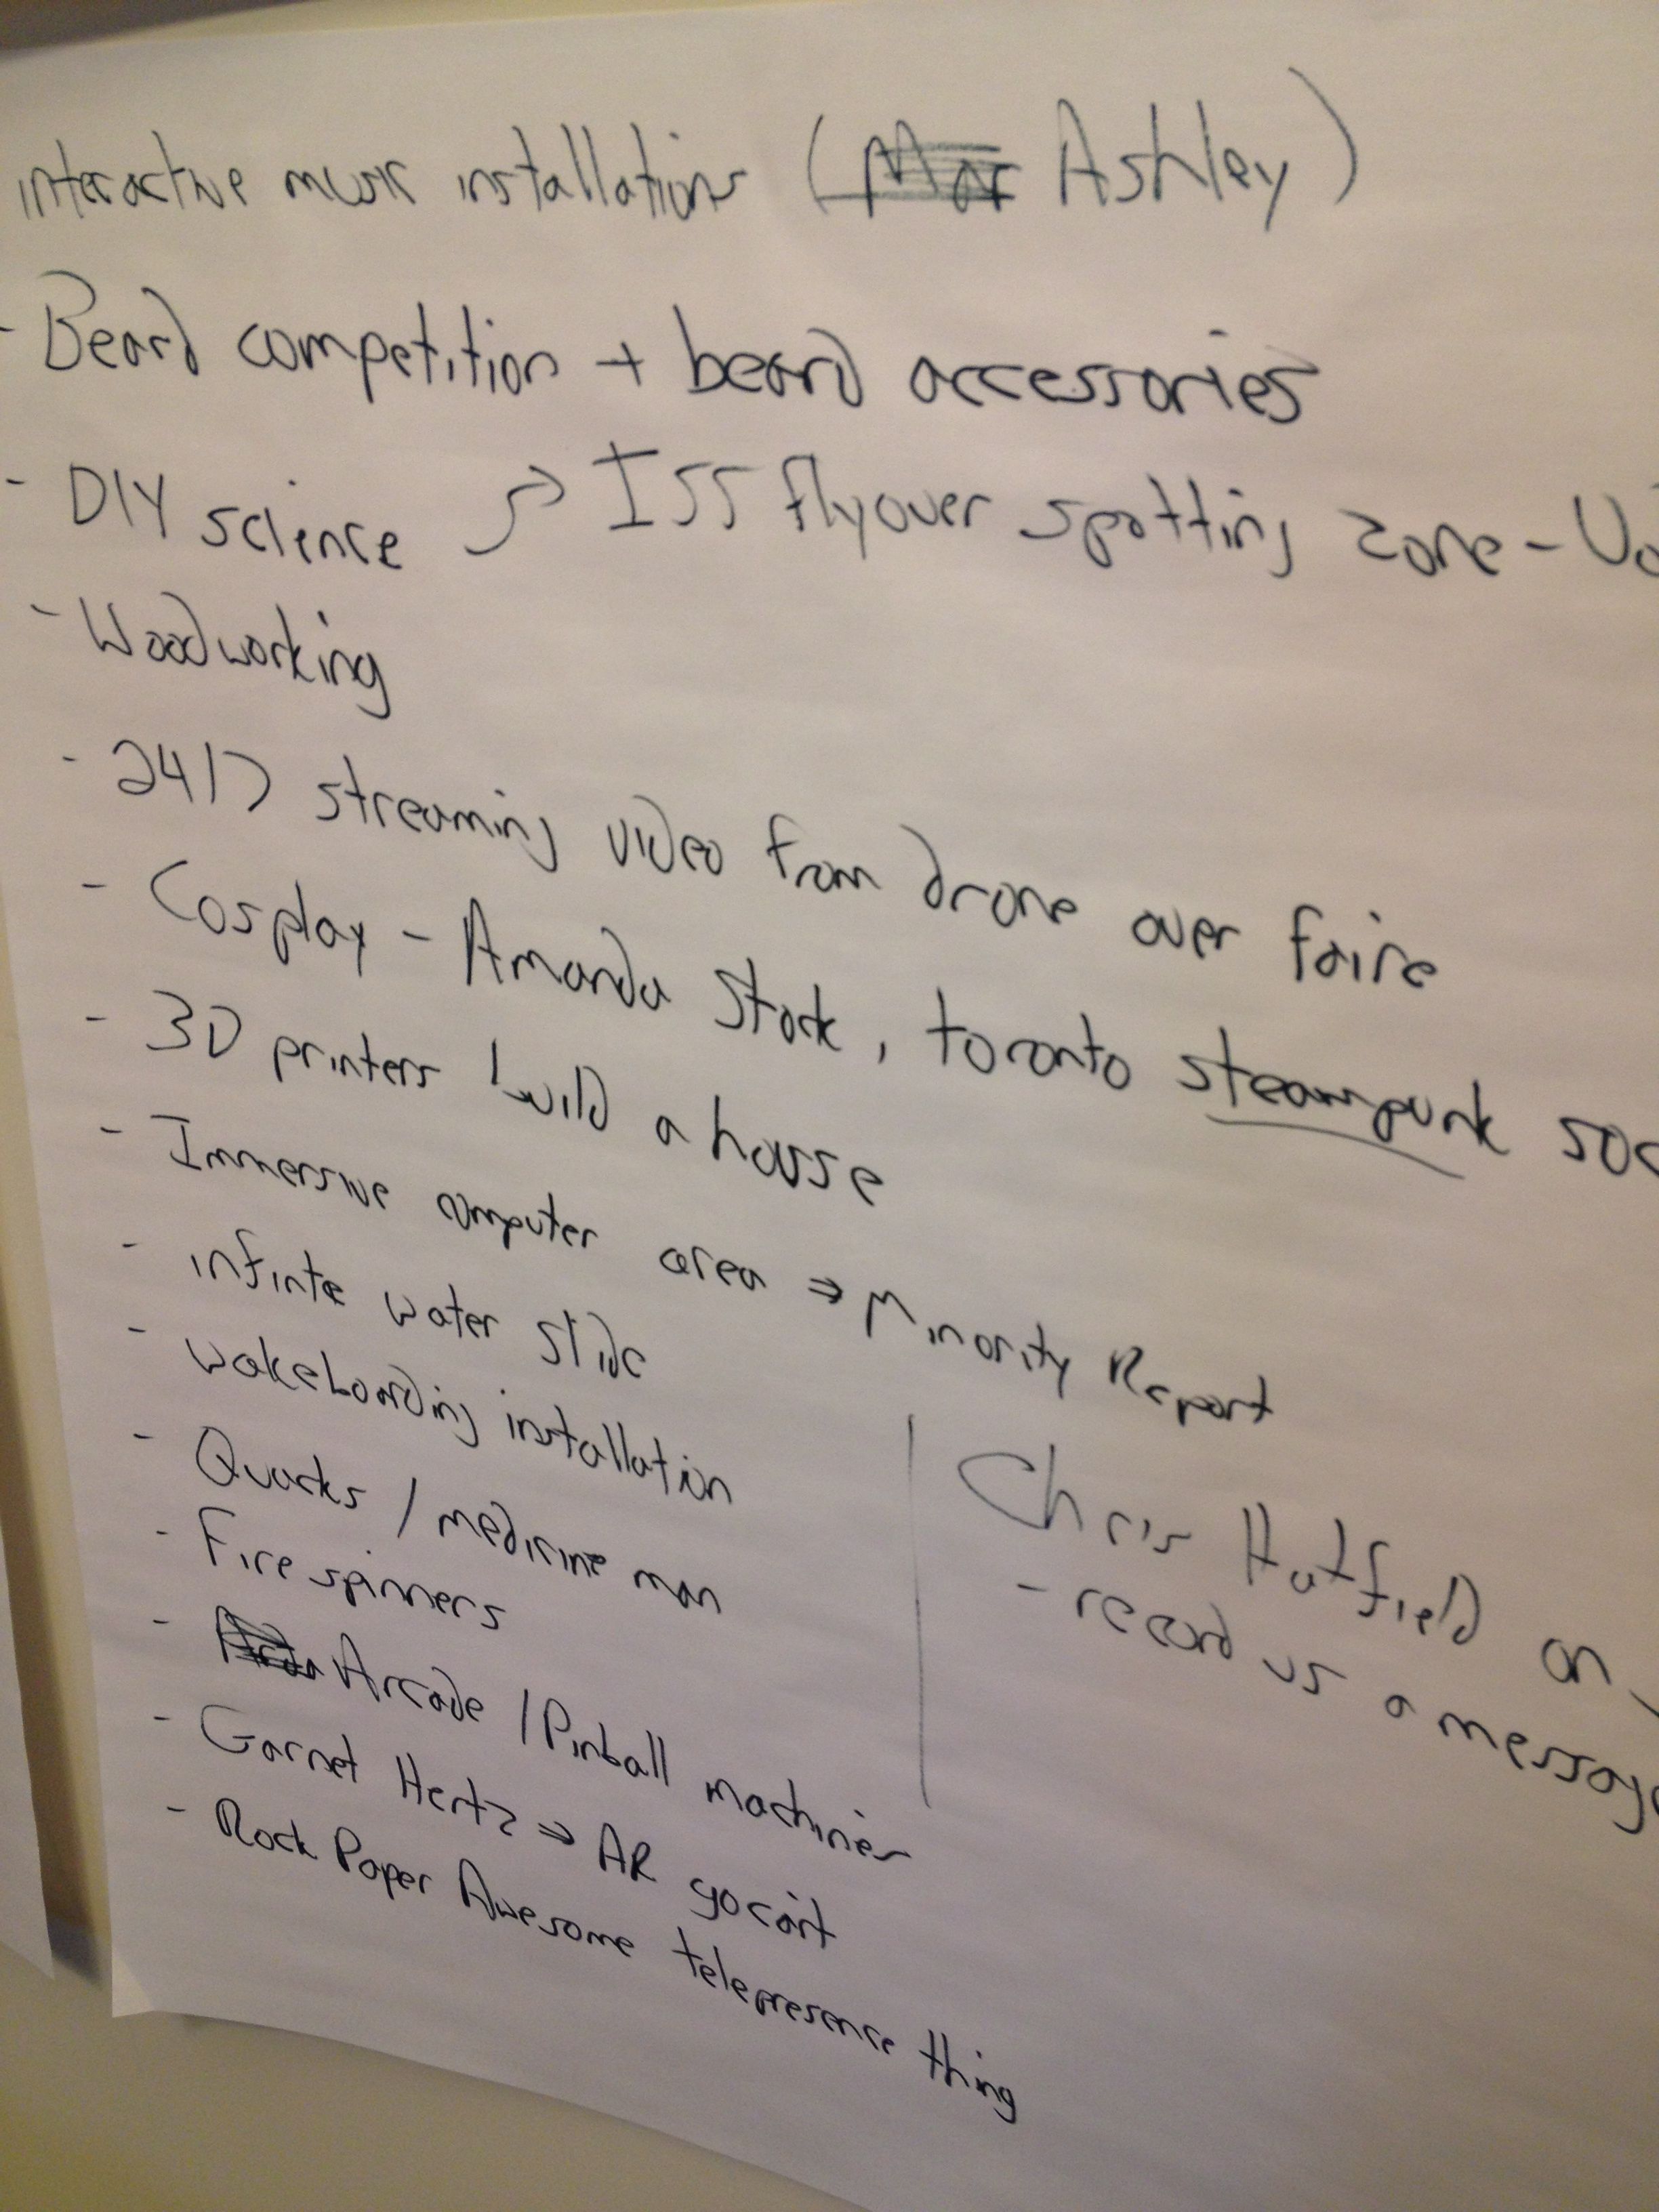 interactive music installations (Ashley)
- Beard competition + beard accessories
- DIY science → ISS flyover spotting zone -
- Woodworking
- 24/7 streaming video from drone over faire
- Cosplay - Amanda Stark, toronto steampunk soc
- 3D printers build a house
- Immersive computer area ⇒ Minority Report
- infinte water slide
- wakeboarding installation
- Quacks / medicine man
- Fire spinners
- Arcade / Pinball machines
- Garnet Hertz ⇒ AR gocart
- Rock Paper Awesome telepresence thing
Chris Hatfield on
- record us a message